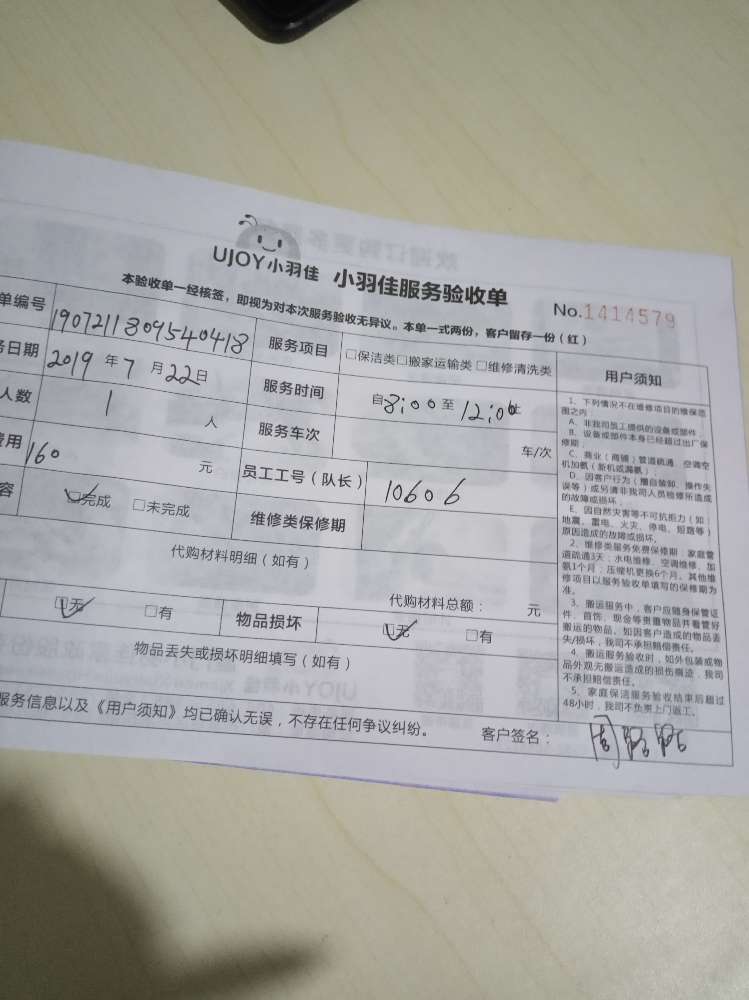 UJOY小羽佳 小羽佳服务验收单
No.1414579
本验收单一经核签，即视为对本次服务验收无异议。本单一式两份，客户留存一份（红）
单编号 190721180954041 8 服务项目 □保洁类□搬家运输类□维修清洗类 用户须知
务日期 2019年7月22日 服务时间 自8:00至12:00止
人数 1 人 服务车次 车/次
费用 160 元 员工工号（队长） 10606
容 ☑完成 □未完成 维修类保修期
代购材料明细（如有）
代购材料总额： 元
☑无 □有 物品损坏 ☑无 □有
物品丢失或损坏明细填写（如有）
服务信息以及《用户须知》均已确认无误，不存在任何争议纠纷。 客户签名：
1、下列情况不在维修项目的维保范
围之内：
A、非我司员工提供的设备或部件；
B、设备或部件本身已经超过出厂保
修期；
C、商业（商铺）管道疏通、空调空
机加氨（新机或漏氨）；
D、因客户行为（擅自装卸、操作失
误等）或另请非我司人员检修所造成
的故障或损坏；
E、因自然灾害等不可抗拒力（如：
地震、雷电、火灾、停电、短路等）
原因造成的故障或损坏。
2、维修类服务免费保修期：家庭管
道疏通3天；水电维修、空调维修、加
氨1个月；压缩机更换6个月。其他维
修项目以服务验收单填写的保修期为
准。
3、搬运服务中，客户应随身保管证
件、首饰、现金等贵重物品并看管好
搬运的物品。如因客户造成的物品丢
失/损坏，我司不承担赔偿责任。
4、搬运服务验收时，如外包装或物
品外观无搬运造成的损伤痕迹，我司
不承担赔偿责任。
5、家庭保洁服务验收结束后超过
48小时，我司不负责上门返工。